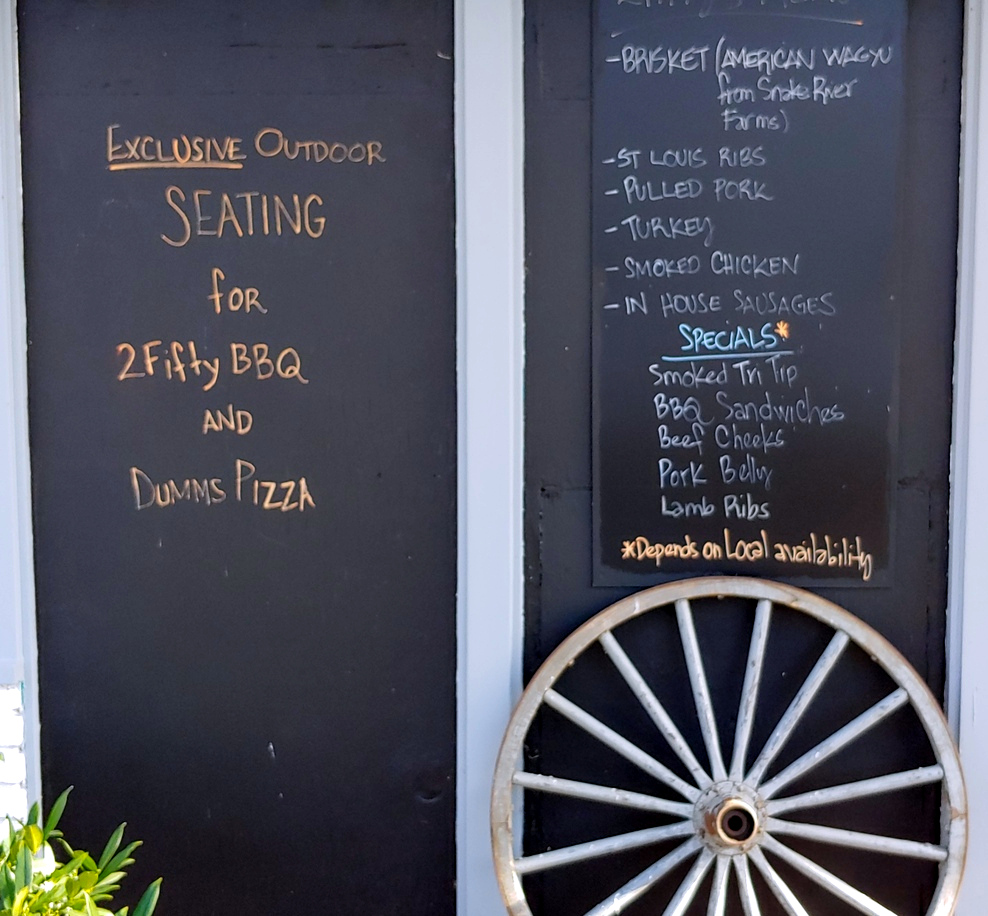 EXCLUSIVE OUTDOOR
SEATING
for
2Fifty BBQ
AND
DUMMS PIZZA
-BRISKET (AMERICAN WAGYU
from Snake River
Farms)
-ST LOUIS RIBS
-PULLED PORK
-TURKEY
-SMOKED CHICKEN
-IN HOUSE SAUSAGES
SPECIALS*
Smoked Tri Tip
BBQ Sandwiches
Beef Cheeks
Pork Belly
Lamb Ribs
*Depends on Local availability